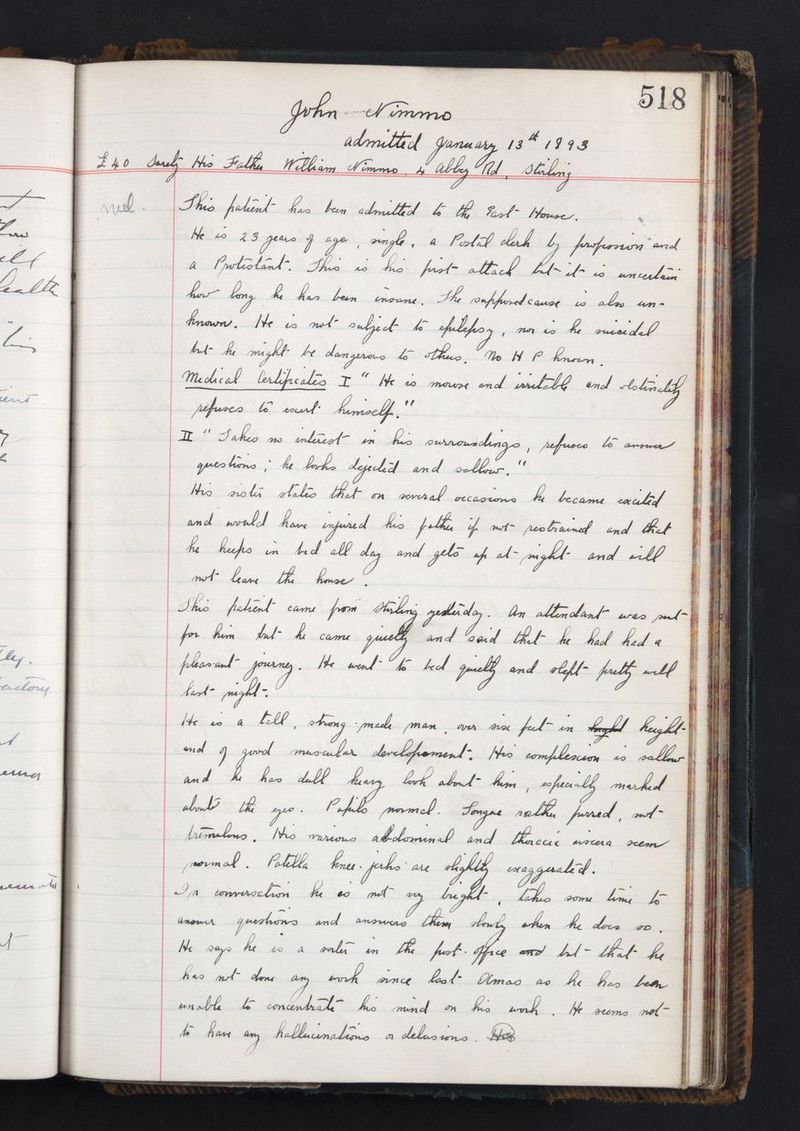 518
John Nimmo
admitted January 13th 1893
£40 Surety His Father William Nimmo 4 Abbey Rd, Stirling
This patient has been admitted to the East House.
He is 23 years of age, single, a Postal clerk by profession and
a Protestant. This is his first attack but it is uncertain
how long he has been insane. The supposed cause is also un-
known. He is not subject to epilepsy, nor is he suicidal
but he might be dangerous to others. No H P known.
Medical Certificates I "He is morose and irritable and obstinately
refuses to exert himself."
II "Takes no interest in his surroundings, refuses to answer
questions; he looks dejected and sallow."
His sister states that on several occasions he became excited
and would have injured his father if not restrained and that
he keeps in bed all day and gets up at night and will
not leave the house.
This patient came from Stirling yesterday. An attendant was sent
for him but he came quietly and said that he had had a
pleasant journey. He went to bed quietly and slept pretty well
last night.
He is a tall, strong-made man, over six feet in height height
and of good muscular development. His complexion is sallow
and he has dull heavy look about him, especially marked
about the eyes. Pupils normal. Tongue rather furred, not
tremulous. His various abdominal and thoracic viscera seem
normal. Patella knee-jerks are slightly exaggerated.
In conversation he is not very bright, takes some time to
answer questions and answers them slowly when he does so.
He says he is a sorter in the post-office and but that he
has not done any work since last Xmas as he has been
unable to concentrate his mind on his work. He seems not
to have any hallucinations or delusions. His